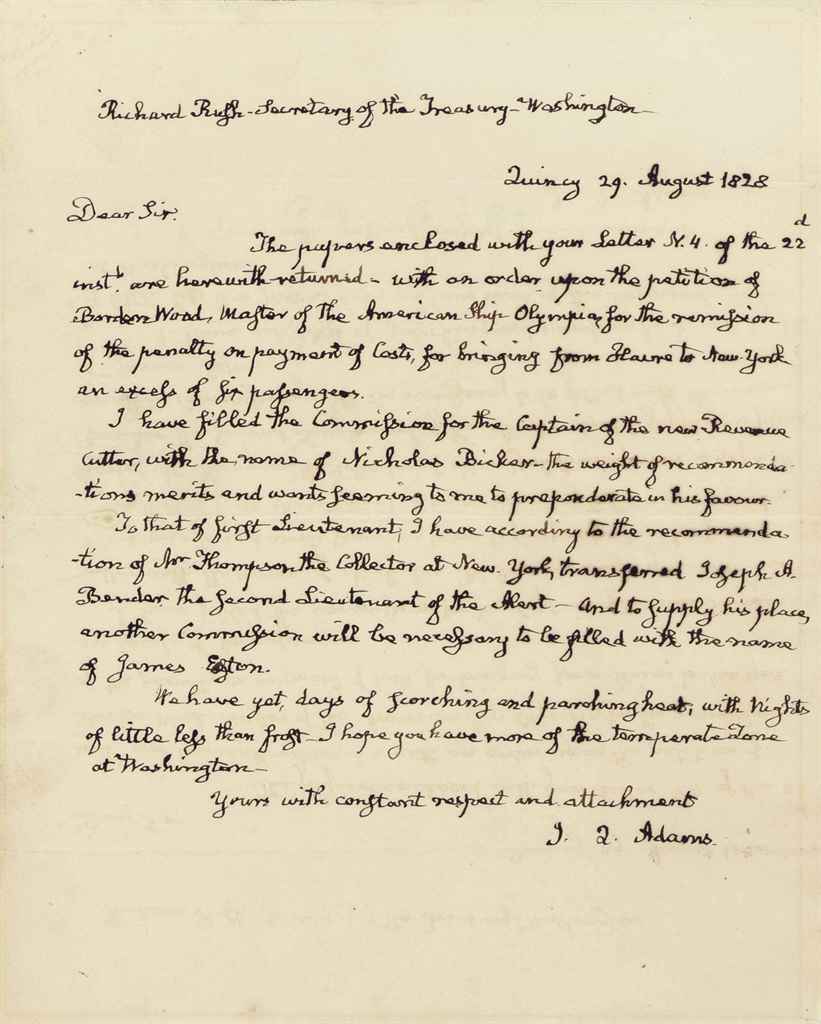 Richard Rush - Secretary of the Treasury - Washington -
Quincy 29. August 1828
Dear Sir.
The papers enclosed with your Letter N. 4. of the 22d
instt. are herewith returned - with an order upon the petition of
Borden Wood, Master of the American Ship Olympia, for the remission
of the penalty on payment of Costs, for bringing from Havre to New-York
an excess of six passengers.
I have filled the Commission for the Captain of the new Revenue
Cutter, with the name of Nicholas Bicker - the weight of recommenda-
-tions merits and wants seeming to me to preponderate in his favour.
To that of first Lieutenant, I have according to the recommenda-
-tion of Mr Thompson the Collector at New. York, transferred Joseph A.
Bender the second Lieutenant of the Alert - And to supply his place,
another Commission will be necessary to be filled with the name
of James
We have yet, days of scorching and parching heat, with Nights
of little less than frost - I hope you have more of the temperate Zone
at Washington -
Yours with constant respect and attachment
J. Q. Adams.